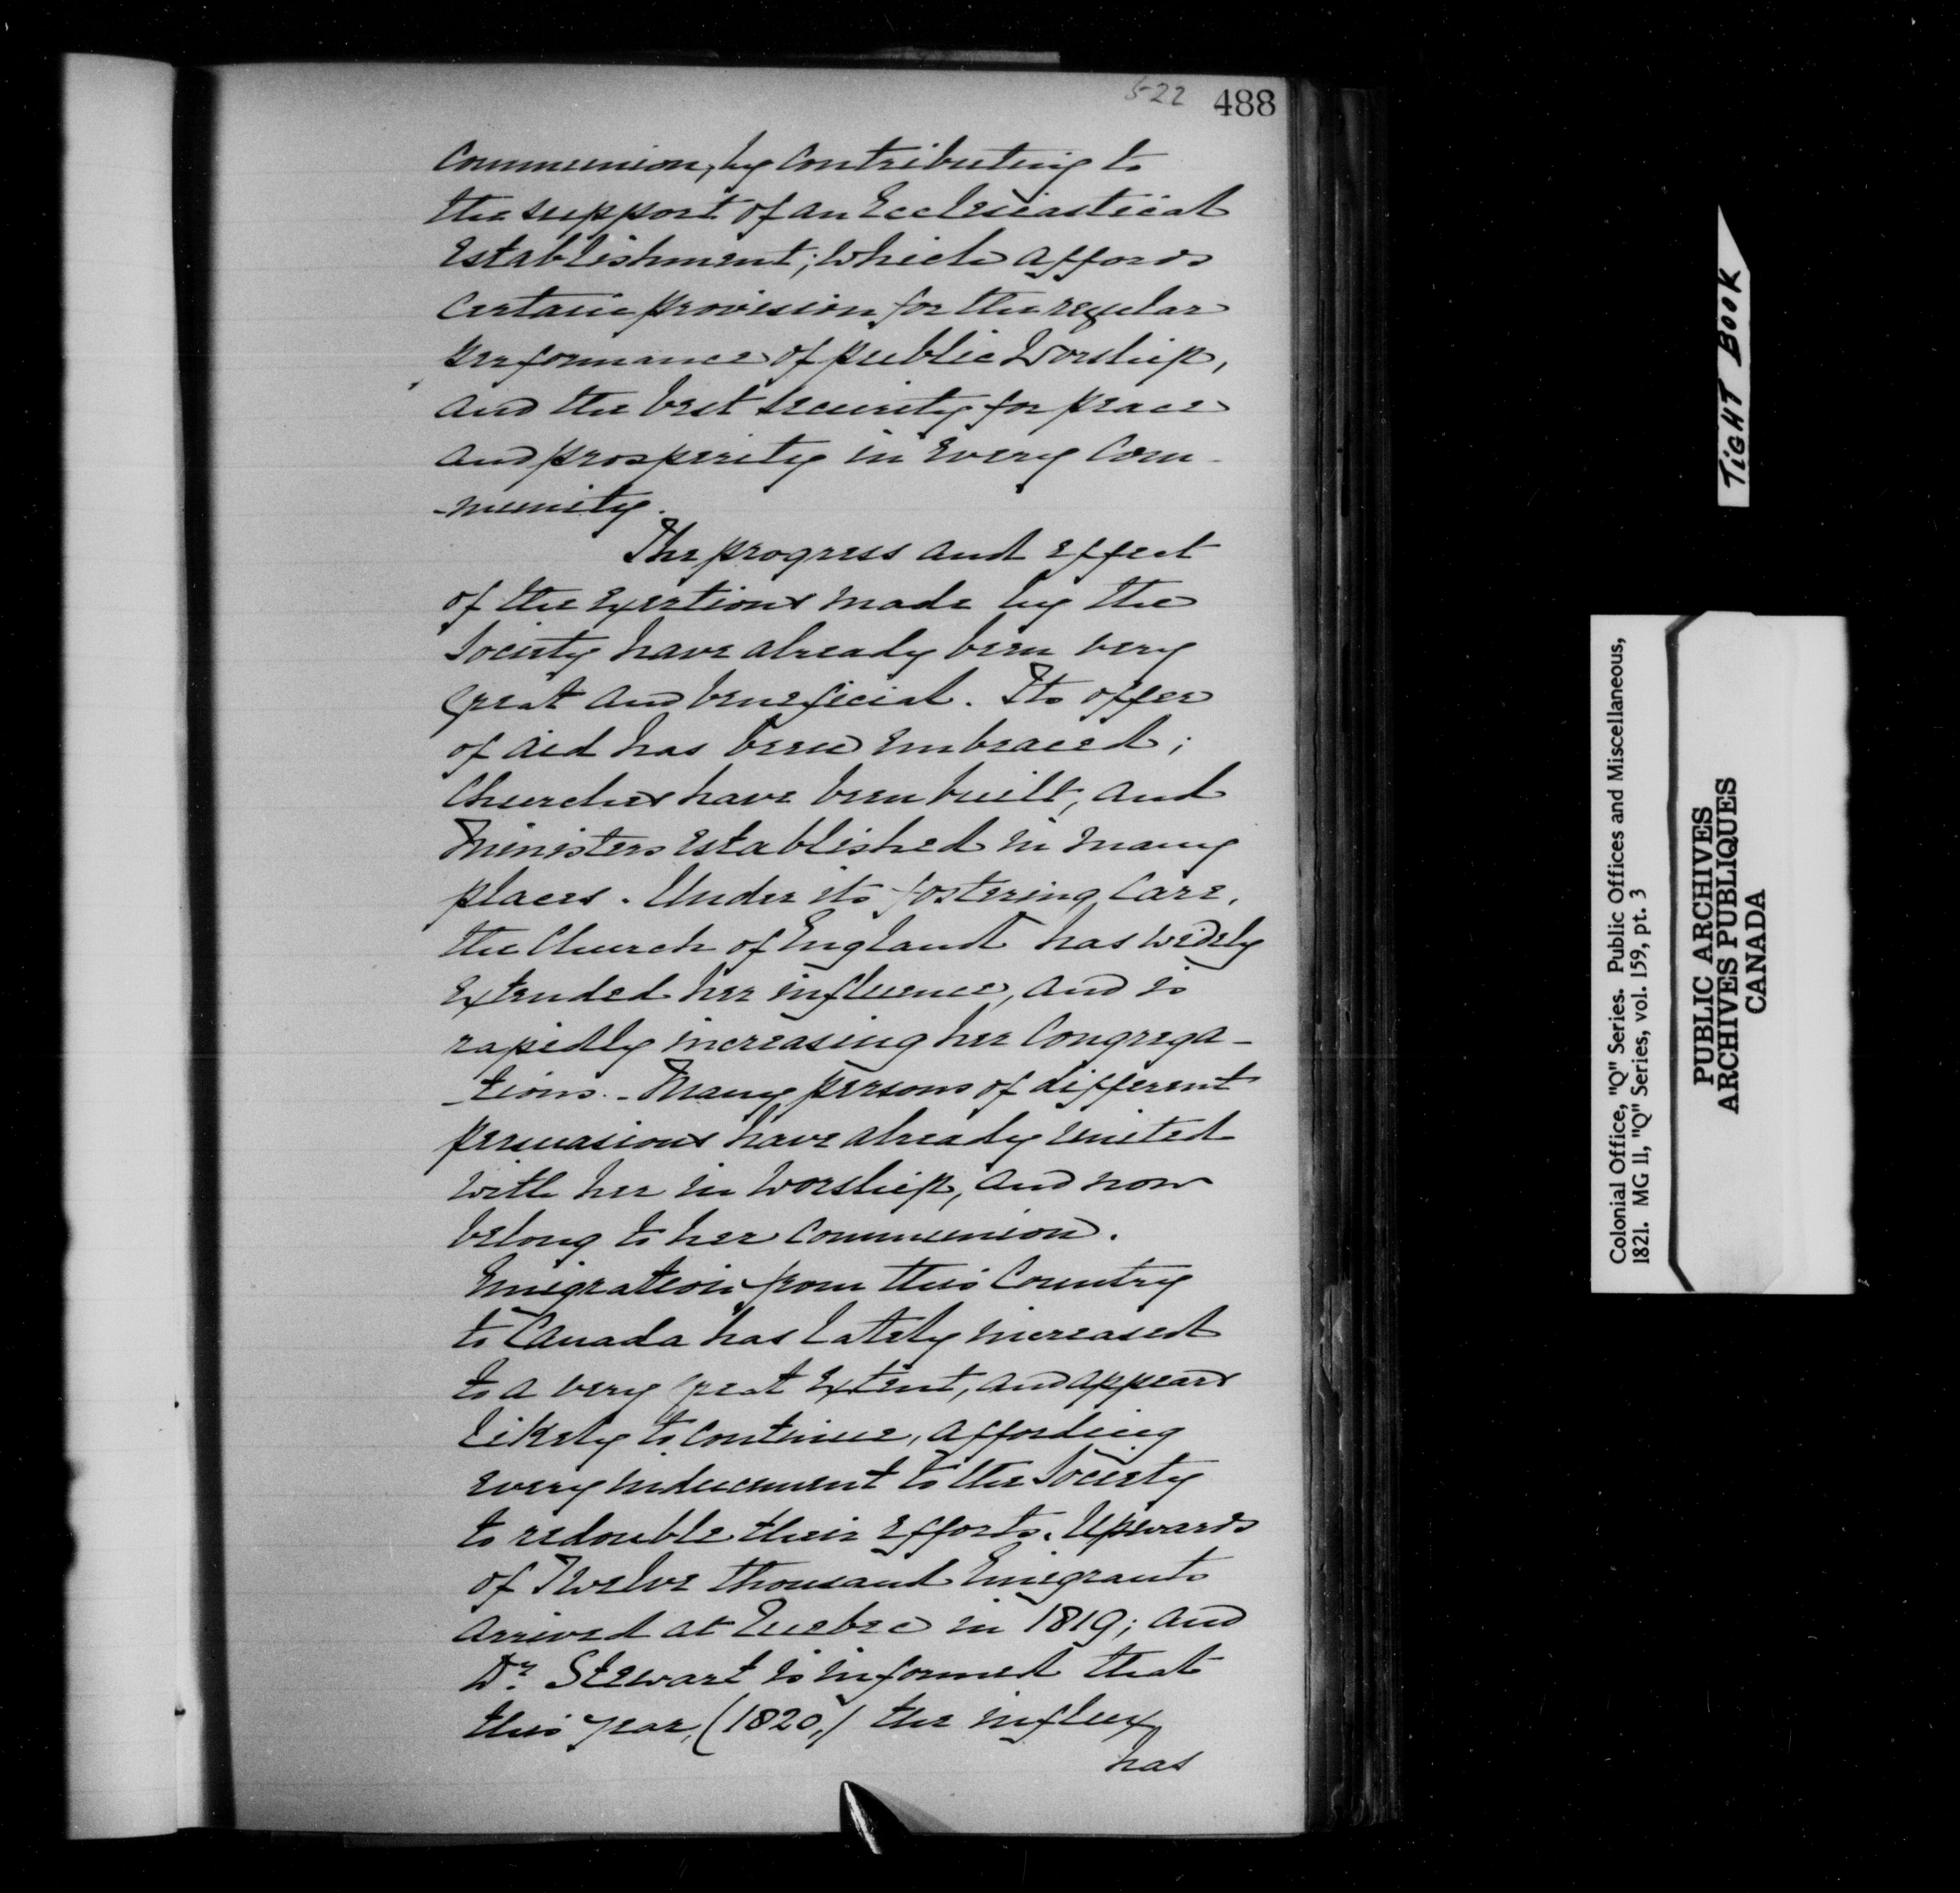 522 488
Communion, by contributing to
the support of an Ecclesiastical
Establishment; which affords
certain provision for the regular
performance of public Worship,
and the best security for peace
and prosperity in every Com-
-munity.
The progress and effect
of the exertions made by the
Society have already been very
great and beneficial. Its offer
of aid has been embraced;
Churches have been built, and
Ministers established in many
places. Under its fostering care,
the Church of England has widely
extended her influence, and is
rapidly increasing her Congrega-
-tions. - Many persons of different
persuasions have already united
with her in worship, and now
belong to her communion.
Emigration from this Country
to Canada has lately increased
to a very great extent, and appears
likely to continue, affording
every inducement to the Society
to redouble their efforts. Upwards
of Twelve thousand Emigrants
arrived at Quebec in 1819; and
Dr. Stewart is informed that
this year, (1820,) the influx
has
TIGHT BOOK
Colonial Office, "Q" Series. Public Offices and Miscellaneous,
1821. MG 11, "Q" Series, vol. 159, pt. 3
PUBLIC ARCHIVES
ARCHIVES PUBLIQUES
CANADA